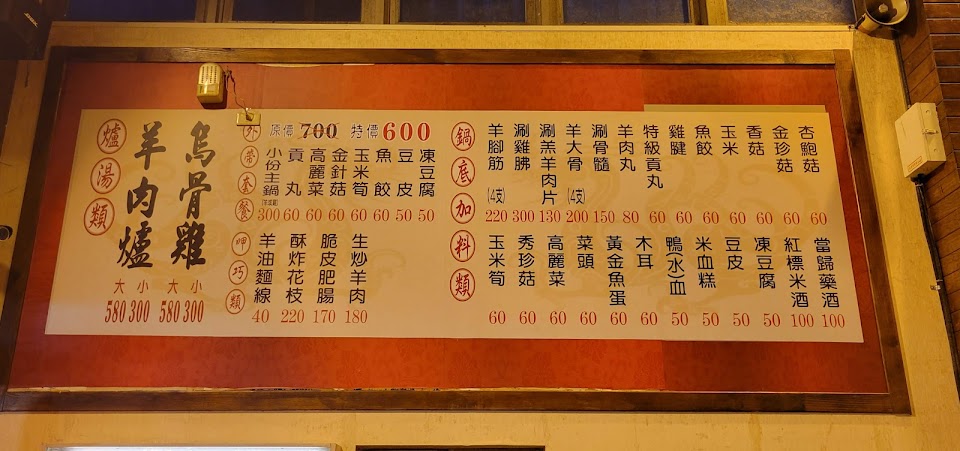 爐湯類
羊肉爐
大 小
580 300
烏骨雞
大 小
580 300
外帶套餐
原價 700 特價 600
小份主鍋 300
貢丸 60
高麗菜 60
金針菇 60
玉米筍 60
魚餃 60
豆皮 50
凍豆腐 50
呷巧類
羊油麵線 40
酥炸花枝 220
脆皮肥腸 170
生炒羊肉 180
鍋底加料類
羊腳筋(4支) 220
涮雞胇 300
涮羔羊肉片 130
羊大骨(4支) 200
涮骨髓 150
羊肉丸 80
特級貢丸 60
雞腱 60
魚餃 60
玉米 60
香菇 60
金珍菇 60
杏鮑菇 60
玉米筍 60
秀珍菇 60
高麗菜 60
菜頭 60
黃金魚蛋 60
木耳 60
鴨(水)血 50
米血糕 50
豆皮 50
凍豆腐 50
紅標米酒 100
當歸藥酒 100